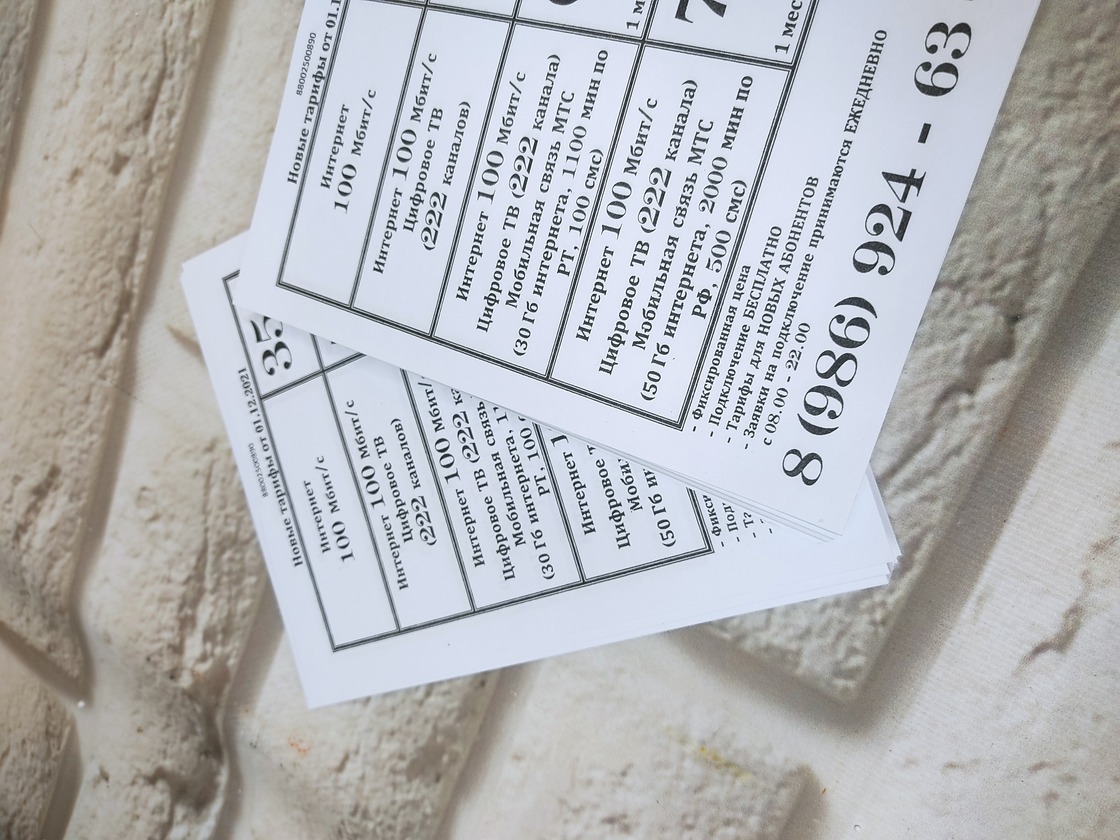 88002500890
Новые тарифы от 01.1
Интернет
100 Мбит/с
Интернет 100 Мбит/с
Цифровое ТВ
(222 каналов)
Интернет 100 Мбит/с
Цифровое ТВ (222 канала)
Мобильная связь МТС
(30 Гб интернета, 1100 мин по
РТ, 100 смс)
1 м
Интернет 100 Мбит/с
Цифровое ТВ (222 канала)
Мобильная связь МТС
(50 Гб интернета, 2000 мин по
РФ, 500 смс)
7
1 мес
- Фиксированная цена
- Подключение БЕСПЛАТНО
- Тарифы для НОВЫХ АБОНЕНТОВ
- Заявки на подключение принимаются ЕЖЕДНЕВНО
с 08.00 - 22.00
8 (986) 924 - 63
88002500890
Новые тарифы от 01.12.2021
Интернет
100 Мбит/с
35
Интернет 100 Мбит/с
Цифровое ТВ
(222 каналов)
Интернет 100 Мбит/
Цифровое ТВ (222 к
Мобильная связь
(30 Гб интернета, 1
РТ, 100
Интернет 1
Цифровое т
Моби
(50 Гб ин
- Фикс
- Под
- Та